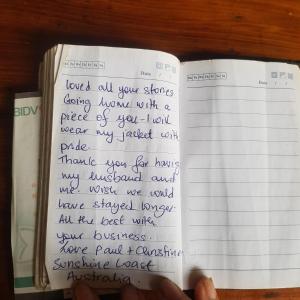 BIDV
Date
Loved all your stories
Going home with a
piece of you - I will
wear my jacket with
pride.
Thank you for having
my husband and
me. Wish we would
have stayed longer.
All the best with
your business.
Love Paul + Christine
Sunshine Coast
Australia.
Date